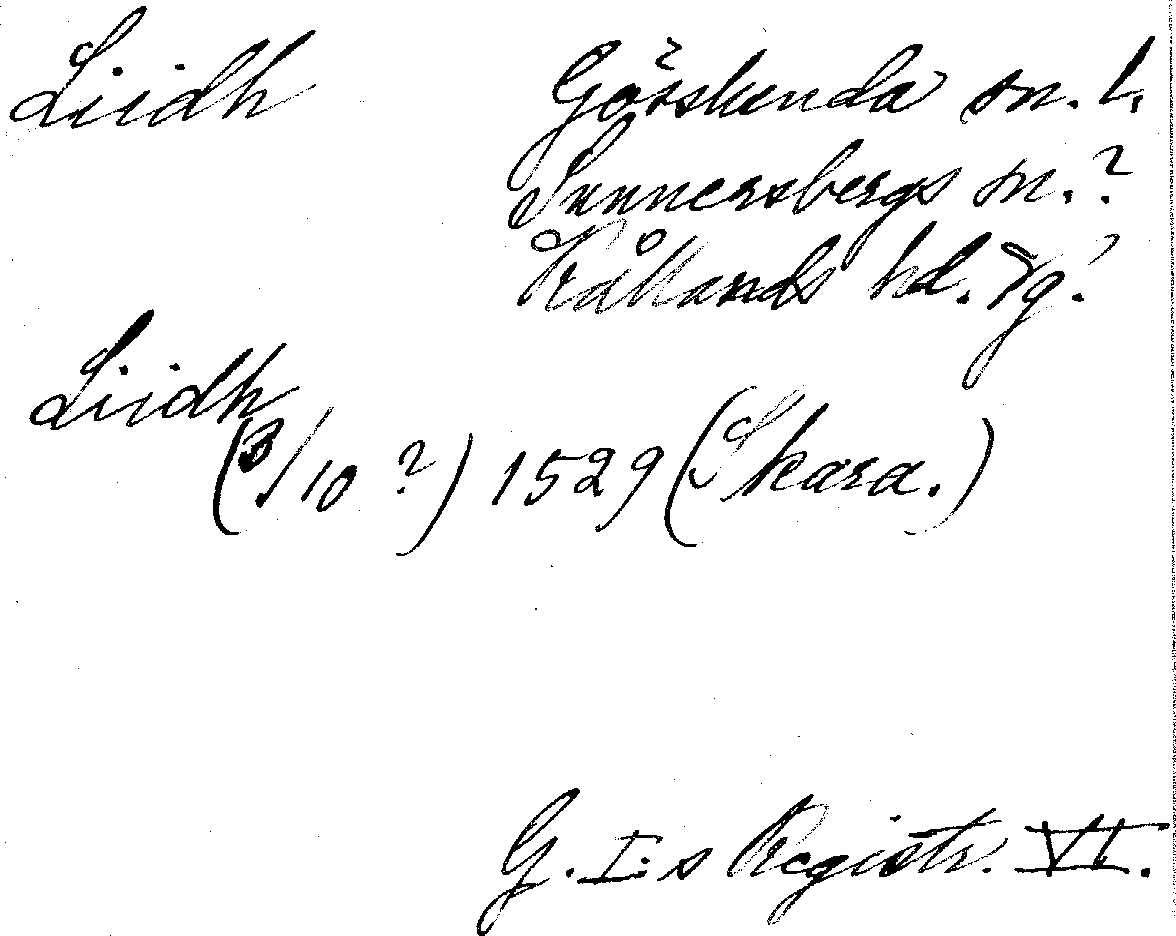 Liidh
Gösslunda sn. l.
Sunnersbergs sn.?
Kållands hd. Vg.
Liidh
(3/10 ?) 1529 (Skara.)
G. I:s Registr. VI.